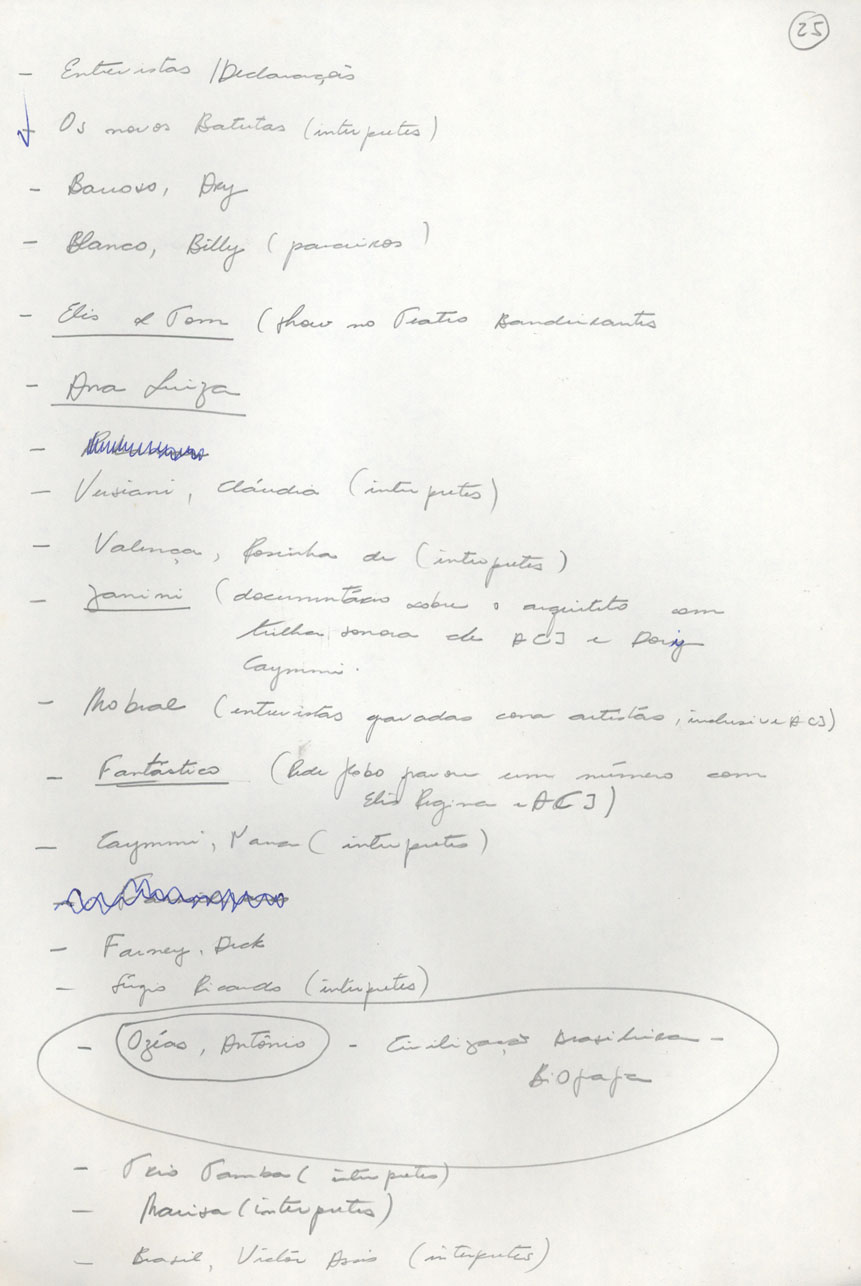 25
- Entrevistas / Declaração
- Os novos Batutas (intérpretes)
- Barroso, Ary
- Blanco, Billy (parceiros)
- Elis & Tom (show no Teatro Bandeirantes
- Ana Luiza
-
- Versiani, Cláudia (intérpretes)
- Valença, Rosinha de (intérpretes)
- Janini (documentário sobre o arquiteto com
trilha sonora de ACJ e Dory
Caymmi.
- Mobral (entrevistas gravadas com artistas, inclusive ACJ)
- Fantástico (Rede Globo gravou um número com
Elis Regina e ACJ)
- Caymmi, Nana (intérpretes)
- Farney, Dick
- Sérgio Ricardo (intérpretes)
- Ozéas, Antônio - Civilização Brasileira -
- Trio Tamba (intérpretes)
- Marisa (intérpretes)
- Brasil, Victor Assis (intérpretes)